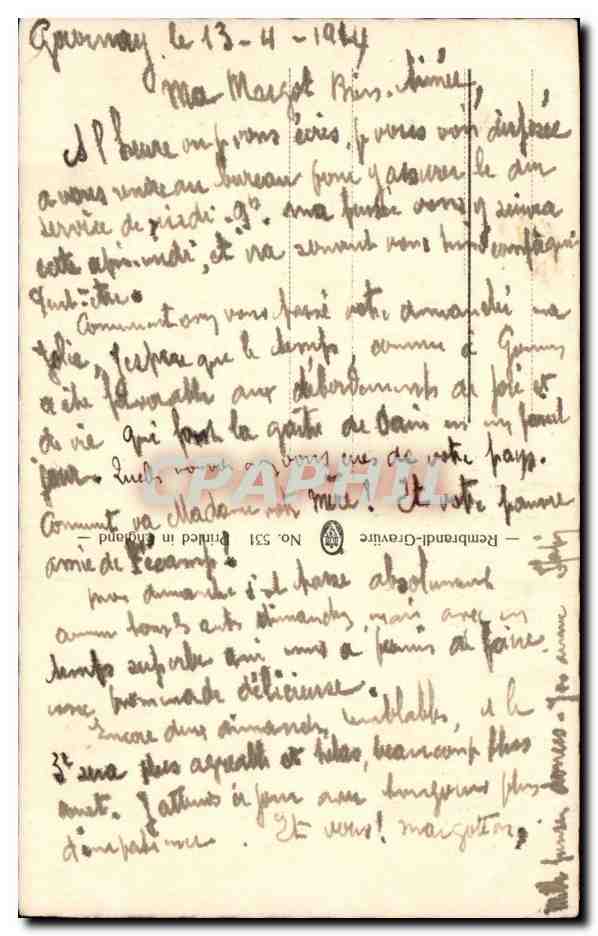 Gournay le 13-4-1914
Ma Margot Bien Aimée,
A l'heure où je vous écris, je vous vois disposée
a vous rendre au bureau pour y assurer le dur
service de ma pensée vous y suivra
cette après-midi, et ira souvent vous tenir compagnie
Peut-être.
Comment avez vous passé votre dimanche ma
Jolie, J'espère que le temps, comme à Gournay
a été favorable aux débordements de joie et
de vie qui font la gaîté de en un pareil
jour. Quels avez vous eues de votre pays.
Comment va Madame votre Mère! Et votre pauvre
amie de Fécamp!
Mon dimanche s'est passé absolument
comme tous les autres dimanches mais avec un
temps superbe qui nous a permis de faire
une promenade délicieuse.
Encore deux dimanches semblables, et le
3e sera plus agréable et hélas, beaucoup plus
court. J'attends ce jour avec toujours plus
d'impatience. Et vous! Margoton,
Mille pensées douces
Rembrandt-Gravüre No. 531 Printed in England
CPARPHIL